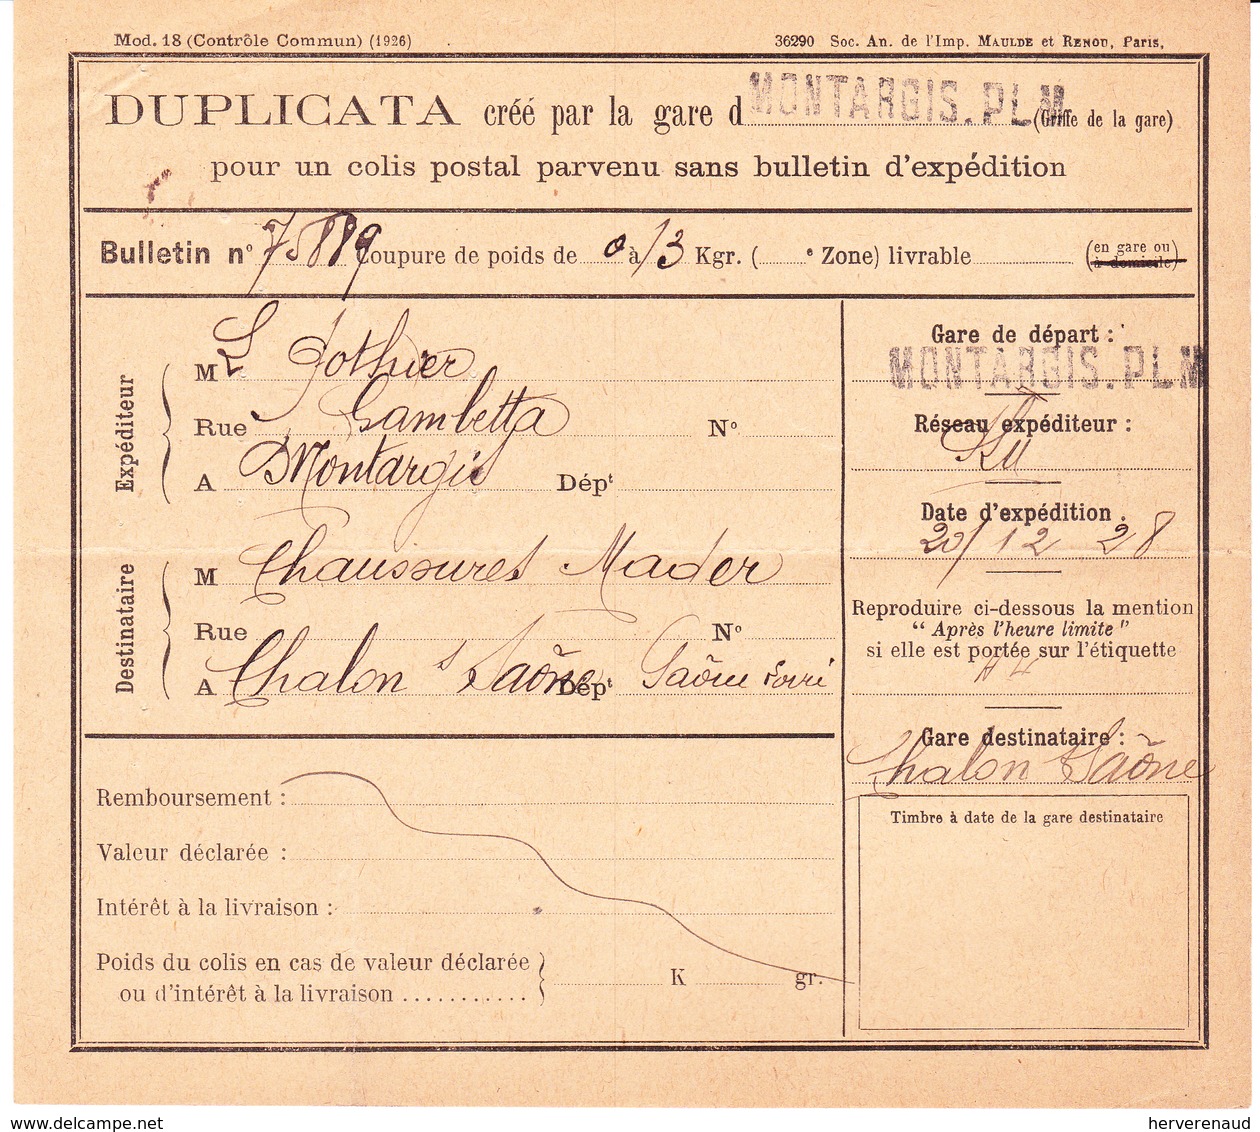 Mod. 18 (Contrôle Commun) (1926)
36290 Soc. An. de l'Imp. MAULDE et RENOU, Paris.
DUPLICATA créé par la gare d MONTARGIS.PLM (Griffe de la gare)
pour un colis postal parvenu sans bulletin d'expédition
Bulletin n° 75889 Coupure de poids de 0 à 3 Kgr. ( e Zone) livrable (en gare ou à domicile)
Expéditeur
M L Gothier
Rue Gambetta N°
A Montargis Dépt
Destinataire
M Chaussures Mader
Rue N°
A Chalon s Saône Dépt Saône Loire
Gare de départ :
MONTARGIS.PLM
Réseau expéditeur :
Date d'expédition :
20/12 28
Reproduire ci-dessous la mention
“ Après l'heure limite ”
si elle est portée sur l'étiquette
Gare destinataire :
Chalon s Saône
Timbre à date de la gare destinataire
Remboursement :
Valeur déclarée :
Intérêt à la livraison :
Poids du colis en cas de valeur déclarée
ou d'intérêt à la livraison ........... K gr.
delcampe.net
herverenaud